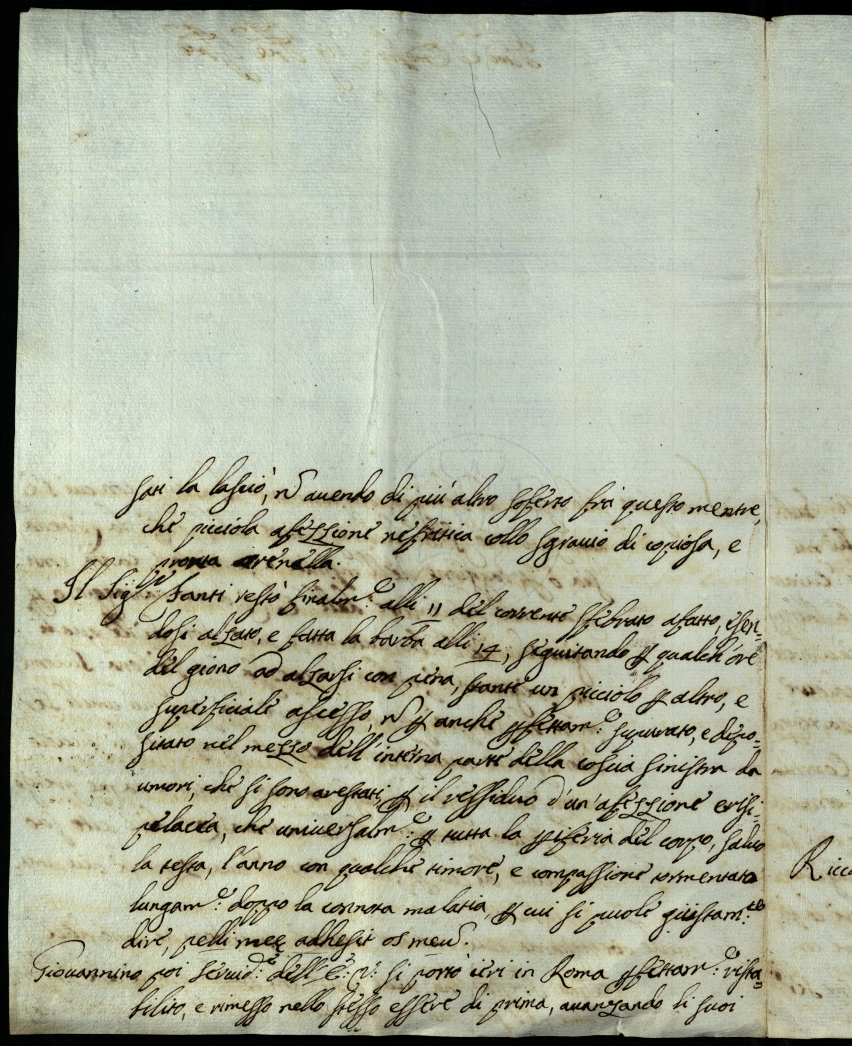 sati la lasciò, nō avendo di più altro soferto frà questo mentre,
che picciola afezzione nefritica collo sgravio di copiosa, e
pronta arenella.
Il Sig.re Santi restò finalm.e alli 11 del corrente sfebrato afatto, esen-
dosi alzato, e fatta la barba alli 14, seguitando ꝑ qualch'ore
del giorno ad alzarsi con pena, stante un picciolo ꝑ altro, e
superficiale ascesso, nō ꝑ anche ꝑfettam.e supurato, e depo-
sitato nel mezzo dell'interna parte della coscia sinistra da
umori, che si sono arestati ꝑ il ressiduo d'un'afezzione erisi-
pelacea, che universalm.e ꝑ tutta la ꝑiferia del corpo, salvo
la testa, l'anno con qualche timore, e compassione tormentato
lungam.e doppo la connota malatia, ꝑ cui si puole giustam.te
dire, pelli meę adhesit os meū.
Giovannino poi servid.e dell'E: V: si portò ieri in Roma ꝑfettam.e rista-
bilito, e rimesso nello stesso essere di prima, avanzando li suoi
Ricc